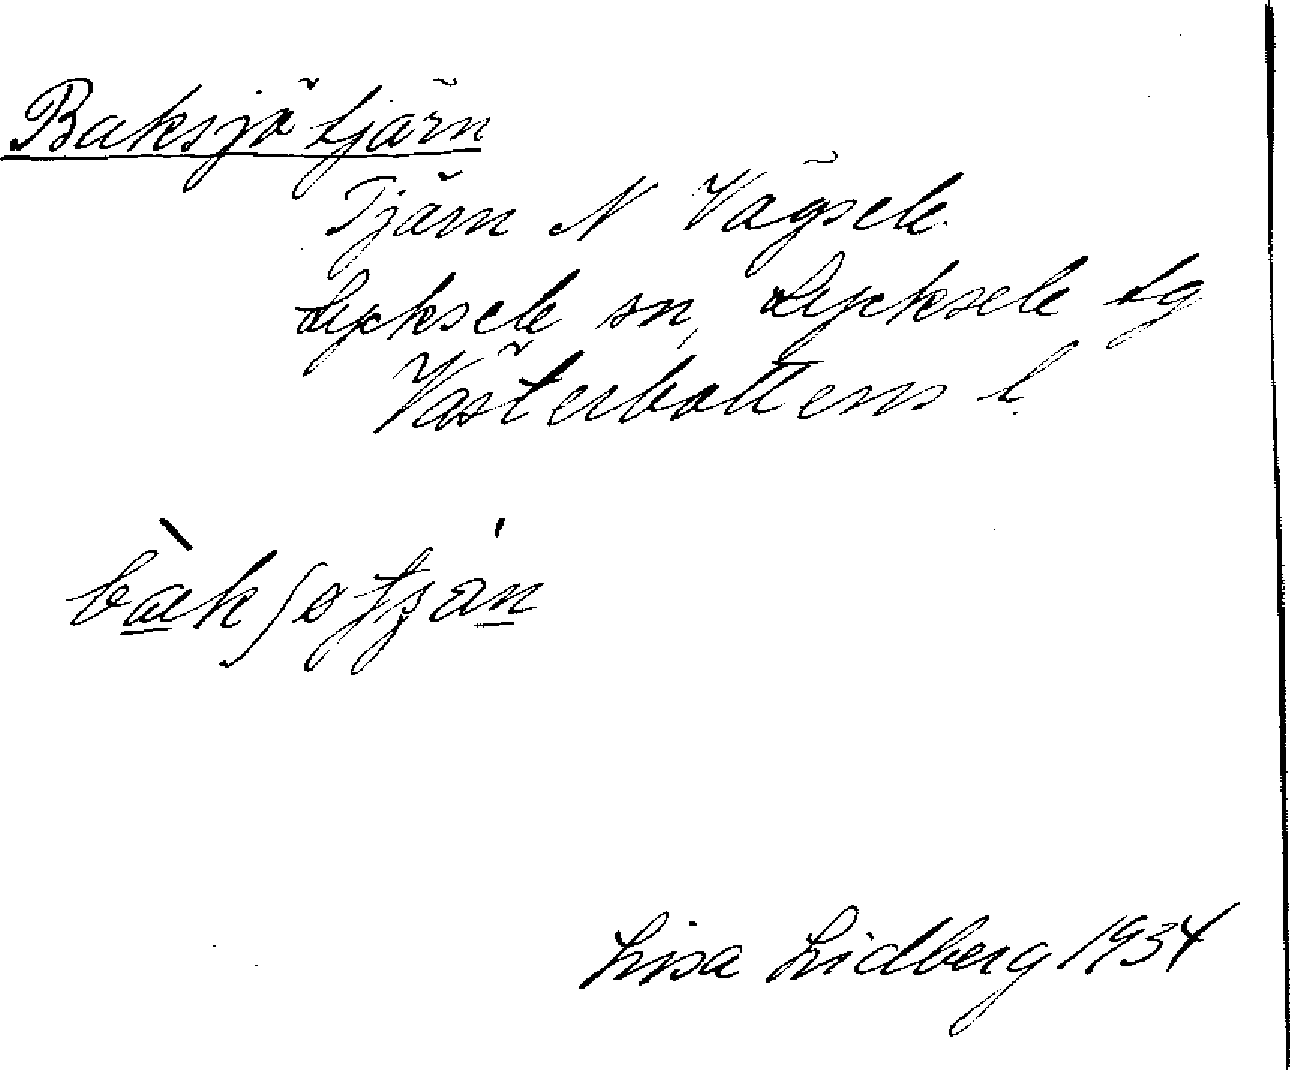 Baksjötjärn
Tjärn N Vägsele
Lycksele sn, Lycksele tg
Västerbottens l.
Lisa Lidberg 1934